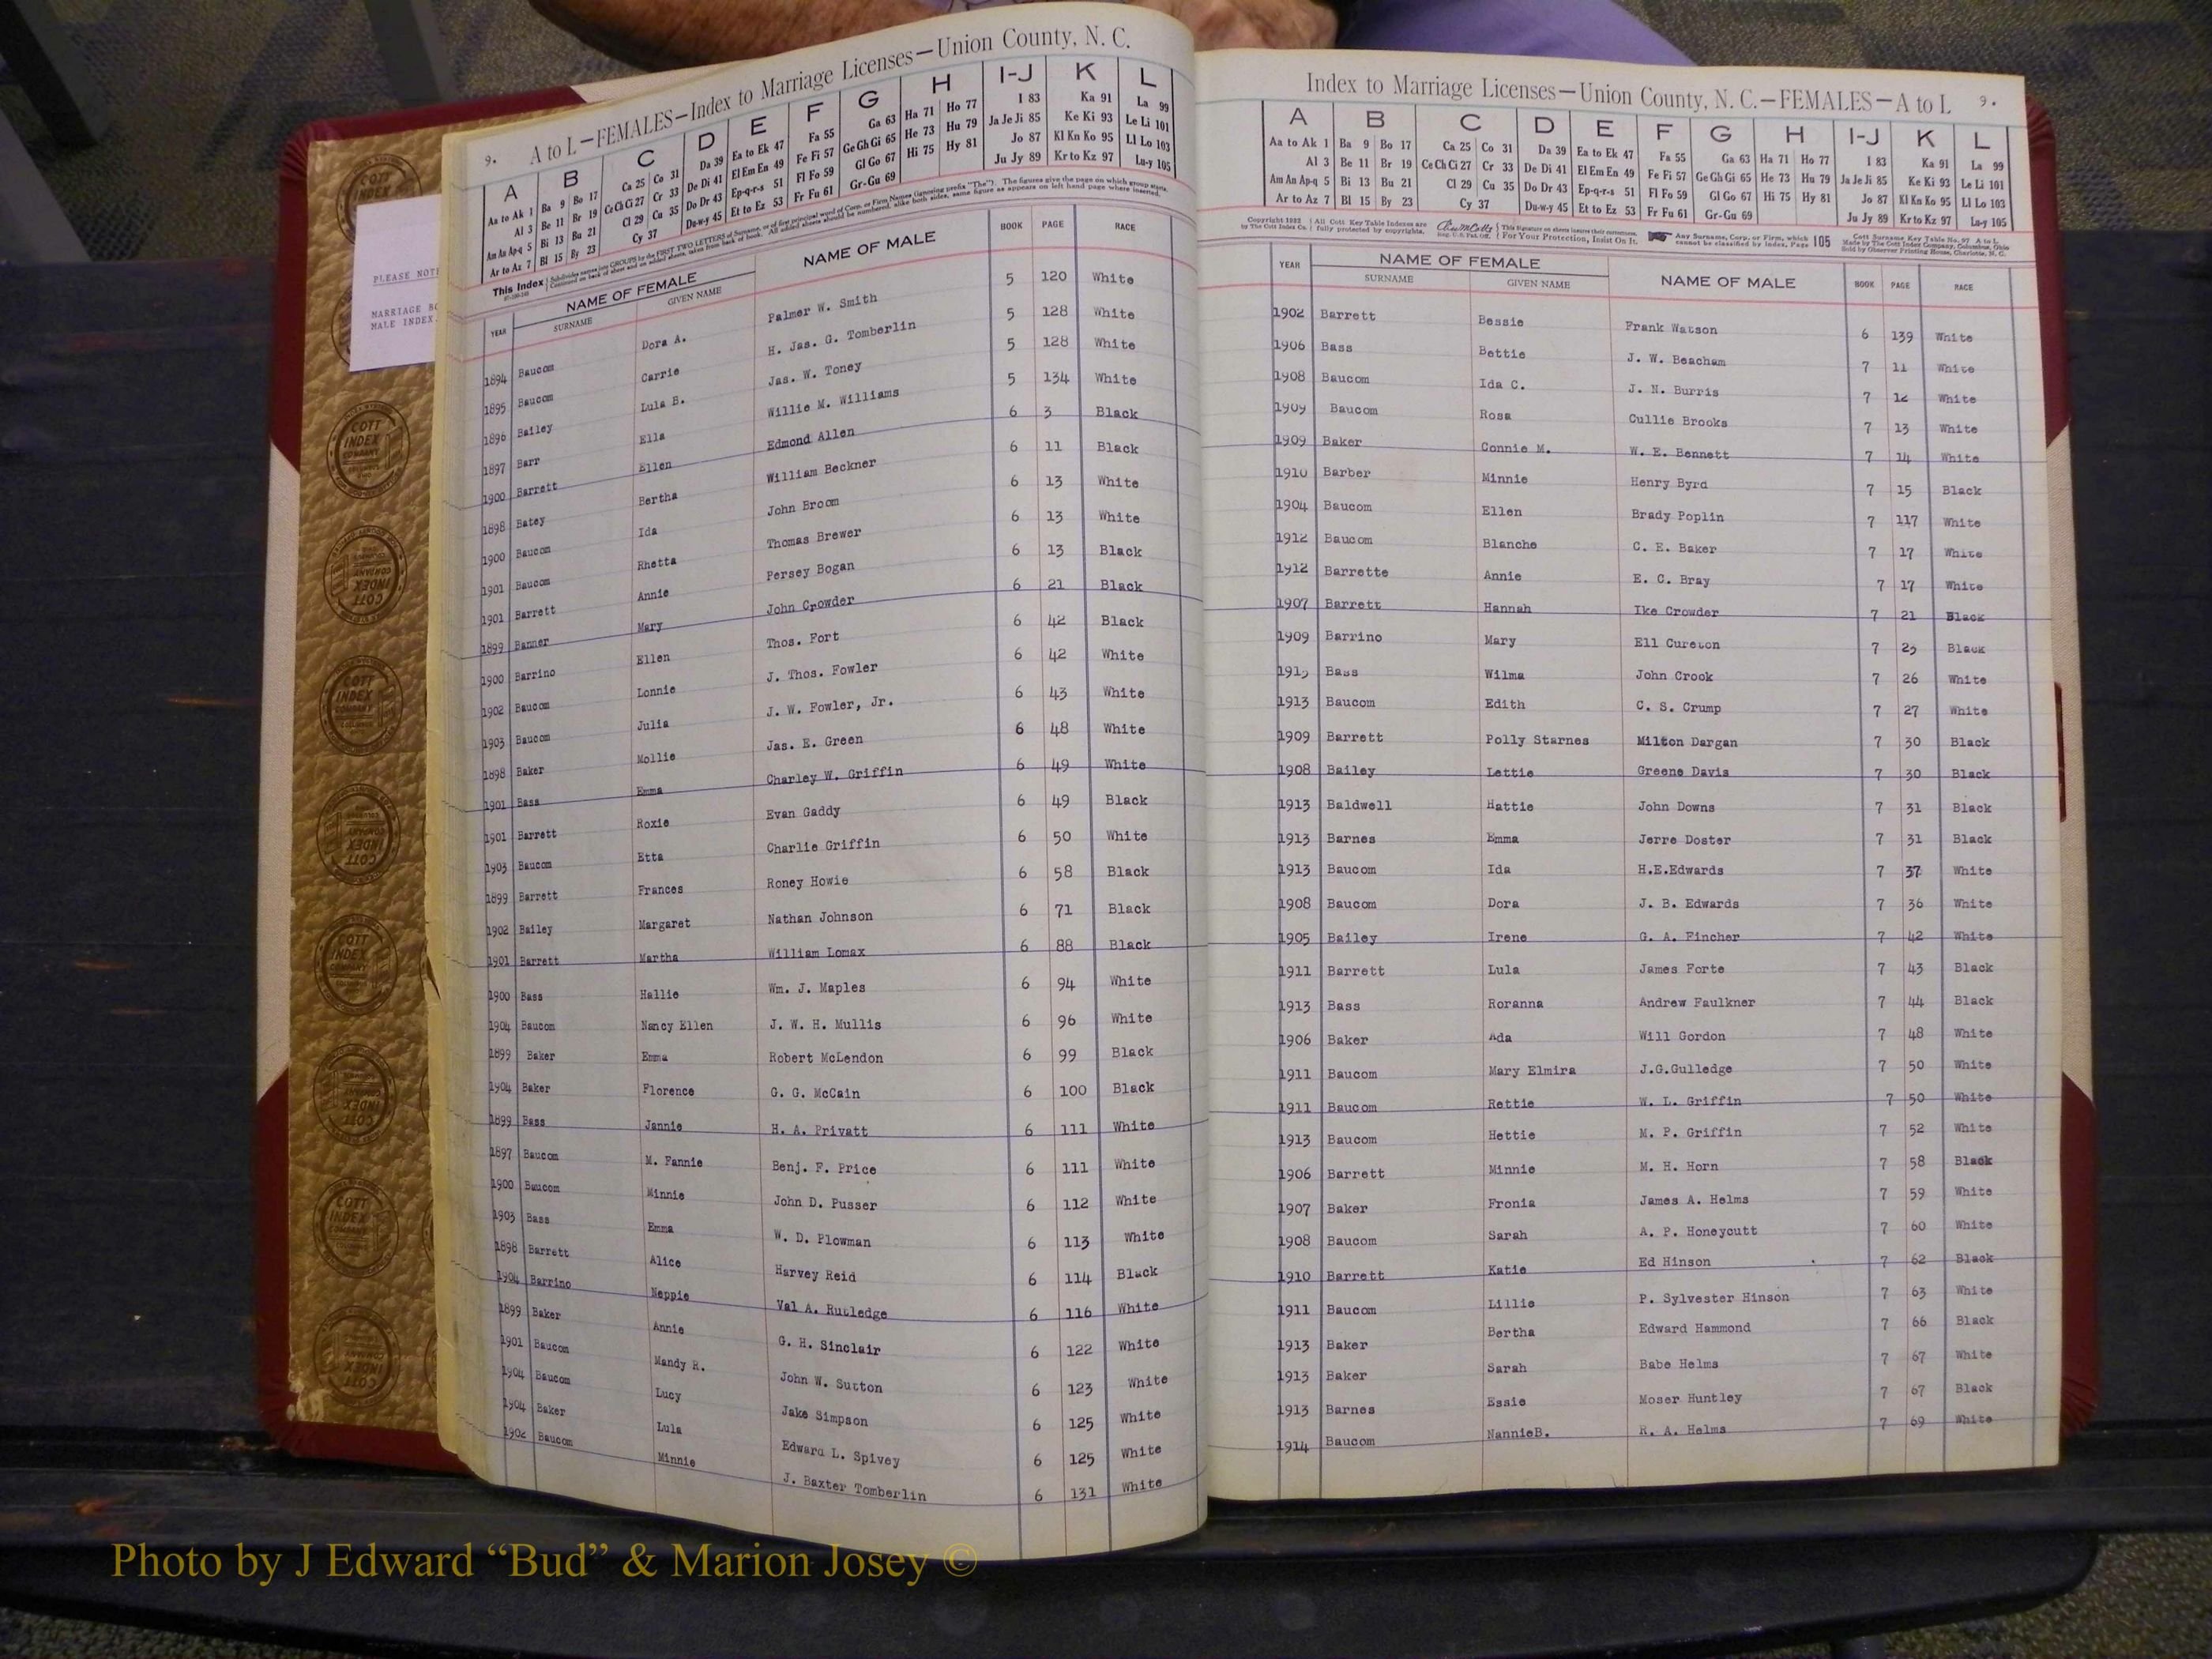 PLEASE NOTE
MARRIAGE BO
MALE INDEX.
9. A to L—FEMALES—Index to Marriage Licenses—Union County, N. C.
A B C D E F G H I-J K L
Aa to Ak 1 Ba 9 Bo 17 Ca 25 Co 31 Da 39 Ea to Ek 47 Fa 55 Ga 63 Ha 71 Ho 77 I 83 Ka 91 La 99
Al 3 Be 11 Br 19 Ce Ch Ci 27 Cr 33 De Di 41 El Em En 49 Fe Fi 57 Ge Gh Gi 65 He 73 Hu 79 Ja Je Ji 85 Ke Ki 93 Le Li 101
Am An Ap-q 5 Bi 13 Bu 21 Cl 29 Cu 35 Do Dr 43 Ep-q-r-s 51 Fl Fo 59 Gl Go 67 Hi 75 Hy 81 Jo 87 Kl Kn Ko 95 Ll Lo 103
Ar to Az 7 Bl 15 By 23 Cy 37 Du-w-y 45 Et to Ez 53 Fr Fu 61 Gr-Gu 69 Ju Jy 89 Kr to Kz 97 Lu-y 105
This Index
YEAR NAME OF FEMALE NAME OF MALE BOOK PAGE RACE
SURNAME GIVEN NAME
1894 Baucom Dora A. Palmer W. Smith 5 120 White
1895 Baucom Carrie H. Jas. G. Tomberlin 5 128 White
1896 Bailey Lula B. Jas. W. Toney 5 128 White
1897 Barr Ella Willie M. Williams 5 134 White
1900 Barrett Ellen Edmond Allen 6 3 Black
1898 Batey Bertha William Beckner 6 11 Black
1900 Baucom Ida John Broom 6 13 White
1901 Baucom Rhetta Thomas Brewer 6 13 White
1901 Barrett Annie Persey Bogan 6 13 Black
1899 Banner Mary John Crowder 6 21 Black
1900 Barrino Ellen Thos. Fort 6 42 Black
1902 Baucom Lonnie J. Thos. Fowler 6 42 White
1903 Baucom Julia J. W. Fowler, Jr. 6 43 White
1898 Baker Mollie Jas. E. Green 6 48 White
1901 Bass Emma Charley W. Griffin 6 49 White
1901 Barrett Roxie Evan Gaddy 6 49 Black
1903 Baucom Etta Charlie Griffin 6 50 White
1899 Barrett Frances Roney Howie 6 58 Black
1902 Bailey Margaret Nathan Johnson 6 71 Black
1901 Barrett Martha William Lomax 6 88 Black
1900 Bass Hallie Wm. J. Maples 6 94 White
1904 Baucom Nancy Ellen J. W. H. Mullis 6 96 White
1899 Baker Emma Robert McLendon 6 99 Black
1904 Baker Florence G. G. McCain 6 100 Black
1899 Bass Jannie H. A. Privatt 6 111 White
1897 Baucom M. Fannie Benj. F. Price 6 111 White
1900 Baucom Minnie John D. Pusser 6 112 White
1903 Bass Emma W. D. Plowman 6 113 White
1898 Barrett Alice Harvey Reid 6 114 Black
1904 Barrino Neppie Val A. Rutledge 6 116 White
1899 Baker Annie G. H. Sinclair 6 122 White
1901 Baucom Mandy R. John W. Sutton 6 123 White
1904 Baucom Lucy Jake Simpson 6 125 White
1904 Baker Lula Edward L. Spivey 6 125 White
1902 Baucom Minnie J. Baxter Tomberlin 6 131 White
Index to Marriage Licenses—Union County, N. C.—FEMALES—A to L 9.
A B C D E F G H I-J K L
Aa to Ak 1 Ba 9 Bo 17 Ca 25 Co 31 Da 39 Ea to Ek 47 Fa 55 Ga 63 Ha 71 Ho 77 I 83 Ka 91 La 99
Al 3 Be 11 Br 19 Ce Ch Ci 27 Cr 33 De Di 41 El Em En 49 Fe Fi 57 Ge Gh Gi 65 He 73 Hu 79 Ja Je Ji 85 Ke Ki 93 Le Li 101
Am An Ap-q 5 Bi 13 Bu 21 Cl 29 Cu 35 Do Dr 43 Ep-q-r-s 51 Fl Fo 59 Gl Go 67 Hi 75 Hy 81 Jo 87 Kl Kn Ko 95 Ll Lo 103
Ar to Az 7 Bl 15 By 23 Cy 37 Du-w-y 45 Et to Ez 53 Fr Fu 61 Gr-Gu 69 Ju Jy 89 Kr to Kz 97 Lu-y 105
YEAR NAME OF FEMALE NAME OF MALE BOOK PAGE RACE
SURNAME GIVEN NAME
1902 Barrett Bessie Frank Watson 6 139 White
1906 Bass Bettie J. W. Beacham 7 11 White
1908 Baucom Ida C. J. N. Burris 7 12 White
1909 Baucom Rosa Cullie Brooks 7 13 White
1909 Baker Connie M. W. E. Bennett 7 14 White
1910 Barber Minnie Henry Byrd 7 15 Black
1904 Baucom Ellen Brady Poplin 7 117 White
1912 Baucom Blanche C. E. Baker 7 17 White
1912 Barrette Annie E. C. Bray 7 17 White
1907 Barrett Hannah Ike Crowder 7 21 Black
1909 Barrino Mary Ell Cureton 7 25 Black
1915 Bass Wilma John Crook 7 26 White
1913 Baucom Edith C. S. Crump 7 27 White
1909 Barrett Polly Starnes Milton Dargan 7 30 Black
1908 Bailey Lettie Greene Davis 7 30 Black
1913 Baldwell Hattie John Downs 7 31 Black
1913 Barnes Emma Jerre Doster 7 31 Black
1913 Baucom Ida H.E.Edwards 7 37 White
1908 Baucom Dora J. B. Edwards 7 36 White
1905 Bailey Irene G. A. Fincher 7 42 White
1911 Barrett Lula James Forte 7 43 Black
1913 Bass Roranna Andrew Faulkner 7 44 Black
1906 Baker Ada Will Gordon 7 48 White
1911 Baucom Mary Elmira J.G.Gulledge 7 50 White
1911 Baucom Rettie W. L. Griffin 7 50 White
1913 Baucom Hettie M. P. Griffin 7 52 White
1906 Barrett Minnie M. H. Horn 7 58 Black
1907 Baker Fronia James A. Helms 7 59 White
1908 Baucom Sarah A. P. Honeycutt 7 60 White
1910 Barrett Katie Ed Hinson 7 62 Black
1911 Baucom Lillie P. Sylvester Hinson 7 63 White
1913 Baker Bertha Edward Hammond 7 66 Black
1913 Baker Sarah Babe Helms 7 67 White
1913 Barnes Essie Moser Huntley 7 67 Black
1914 Baucom NannieB. R. A. Helms 7 69 White
Photo by J Edward “Bud” & Marion Josey ©